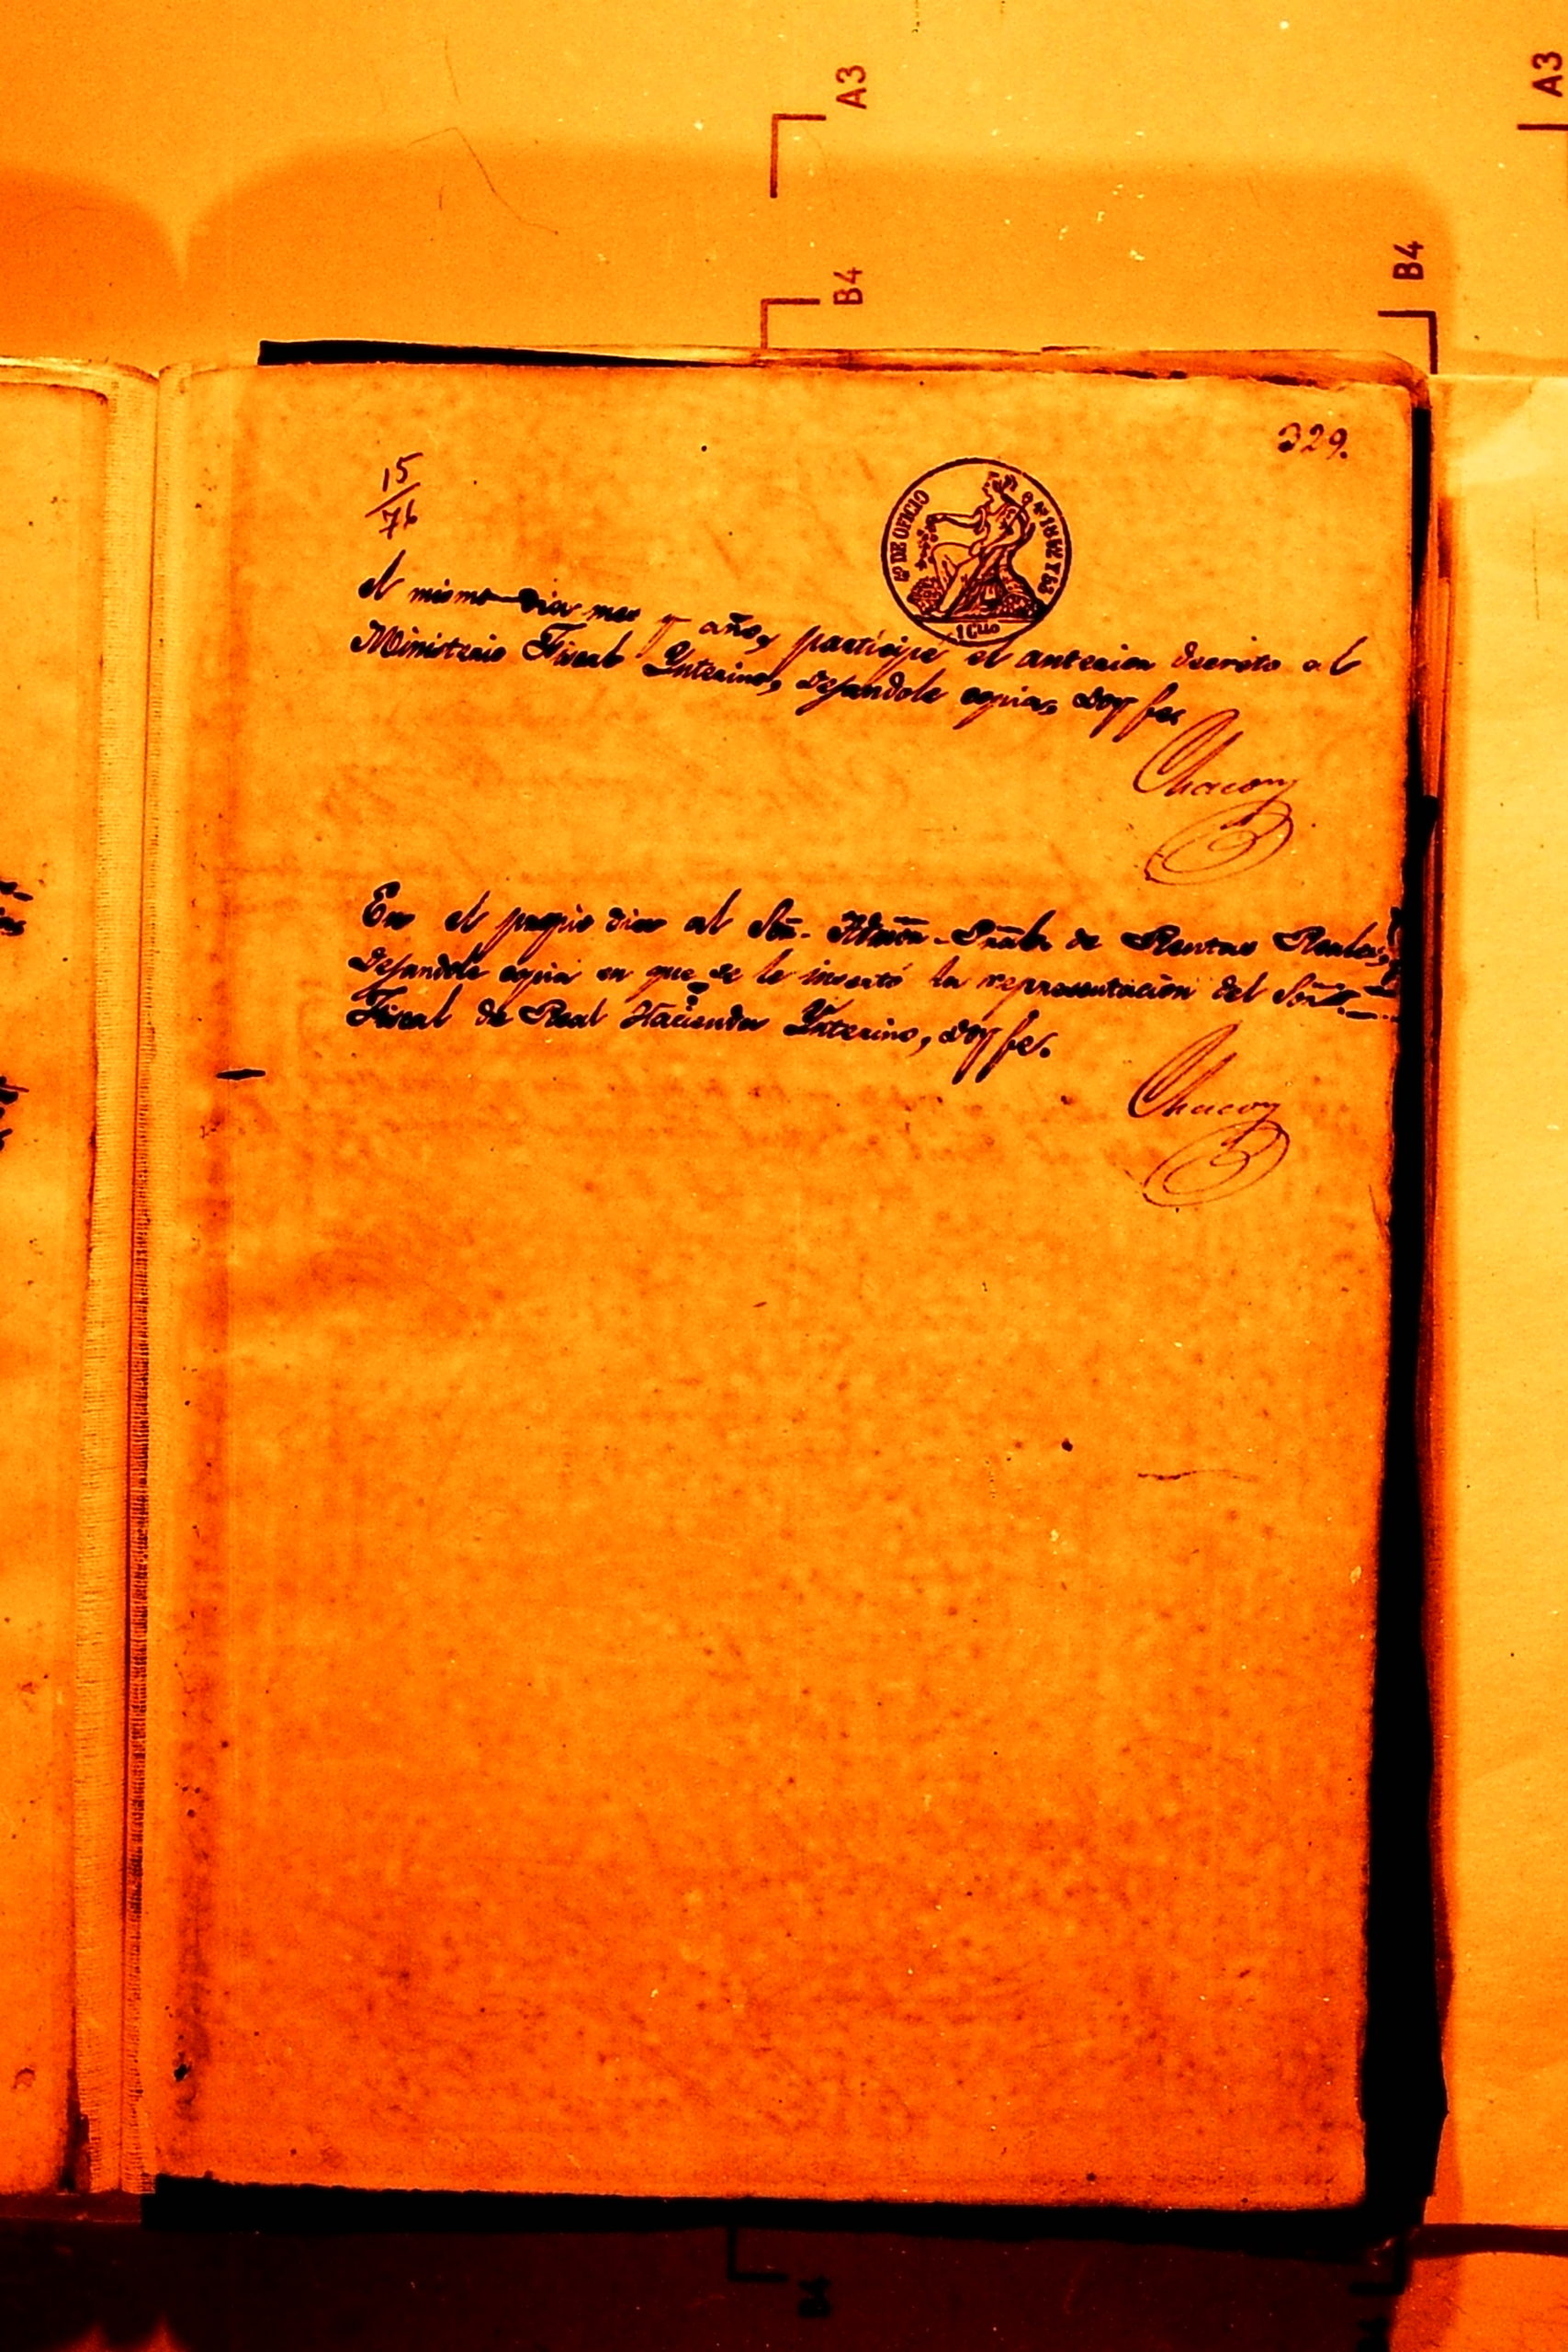 A3
A3
B4
B4
329.
15
76
Sº DE OFICIO
1 Cuo
el mismo dia mes y año, participe el anterior decreto al
Ministerio Fiscal Ynterino, dejandole copia, doy fe.
Chacon
En el propio dia al Sōr. Admōn. de Rentas Reales,
dejandole copia en que se le insertó la representación del Sōr.
Fiscal de Real Hacienda Ynterino, doy fe.
Chacon
B4